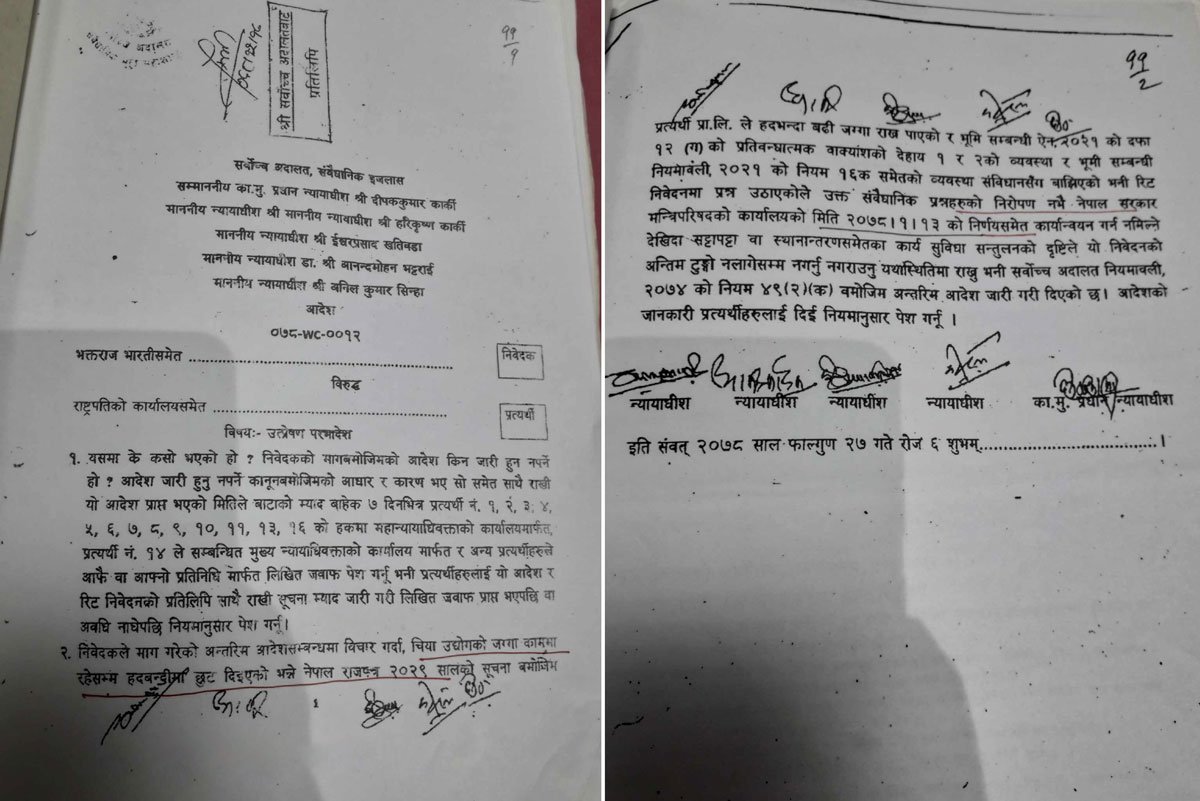 श्री सर्वोच्च अदालतबाट
प्रतिलिपि
११
१
सर्वोच्च अदालत, संवैधानिक इजलास
सम्माननीय का.मु. प्रधान न्यायाधीश श्री दीपककुमार कार्की
माननीय न्यायाधीश श्री माननीय न्यायाधीश श्री हरिकृष्ण कार्की
माननीय न्यायाधीश श्री ईश्वरप्रसाद खतिवडा
माननीय न्यायाधीश डा. श्री आनन्दमोहन भट्टराई
माननीय न्यायाधीश श्री अनिल कुमार सिन्हा
आदेश
०७८-WC-००१२
भक्तराज भारतीसमेत ........................................................ निवेदक
विरुद्ध
राष्ट्रपतिको कार्यालयसमेत ................................................ प्रत्यर्थी
विषयः- उत्प्रेषण परमादेश
१. यसमा के कसो भएको हो ? निवेदकको मागबमोजिमको आदेश किन जारी हुन नपर्ने
हो ? आदेश जारी हुनु नपर्ने कानूनबमोजिमको आधार र कारण भए सो समेत साथै राखी
यो आदेश प्राप्त भएको मितिले बाटाको म्याद बाहेक ७ दिनभित्र प्रत्यर्थी नं. १, २, ३, ४,
५, ६, ७, ८, ९, १०, ११, १३, १६ को हकमा महान्यायाधिवक्ताको कार्यालयमार्फत,
प्रत्यर्थी नं. १४ ले सम्बन्धित मुख्य न्यायाधिवक्ताको कार्यालय मार्फत र अन्य प्रत्यर्थीहरुले
आफै वा आफ्नो प्रतिनिधि मार्फत लिखित जवाफ पेश गर्नू भनी प्रत्यर्थीहरुलाई यो आदेश र
रिट निवेदनको प्रतिलिपि साथै राखी सूचना म्याद जारी गरी लिखित जवाफ प्राप्त भएपछि वा
अवधि नाघेपछि नियमानुसार पेश गर्नू।
२. निवेदकले माग गरेको अन्तरिम आदेशसम्बन्धमा विचार गर्दा, चिया उद्योगको जग्गा काममा
रहेसम्म हदबन्दीमा छुट दिइएको भन्ने नेपाल राजपत्र २०२९ सालको सूचना बमोजिम
११
२
प्रत्यर्थी प्रा.लि. ले हदभन्दा बढी जग्गा राख्न पाएको र भूमि सम्बन्धी ऐन, २०२१ को दफा
१२ (ग) को प्रतिवन्धात्मक वाक्यांशको देहाय १ र २को व्यवस्था र भूमी सम्बन्धी
नियमावली, २०२१ को नियम १६क समेतको व्यवस्था संविधानसँग बाझिएको भनी रिट
निवेदनमा प्रश्न उठाएकोले उक्त संवैधानिक प्रश्नहरुको निरोपण नभै नेपाल सरकार
मन्त्रिपरिषदको कार्यालयको मिति २०७८।१।१३ को निर्णयसमेत कार्यान्वयन गर्न नमिल्ने
देखिदा सट्टापट्टा वा स्थानान्तरणसमेतका कार्य सुविधा सन्तुलनको दृष्टिले यो निवेदनको
अन्तिम टुङ्गो नलागेसम्म नगर्नु नगराउनु यथास्थितिमा राख्नु भनी सर्वोच्च अदालत नियमावली,
२०७४ को नियम ४९(२)(क) बमोजिम अन्तरिम आदेश जारी गरी दिएको छ। आदेशको
जानकारी प्रत्यर्थीहरुलाई दिई नियमानुसार पेश गर्नू ।
न्यायाधीश न्यायाधीश न्यायाधीश न्यायाधीश का.मु. प्रधान न्यायाधीश
इति संवत् २०७८ साल फाल्गुण २७ गते रोज ६ शुभम्..............................।